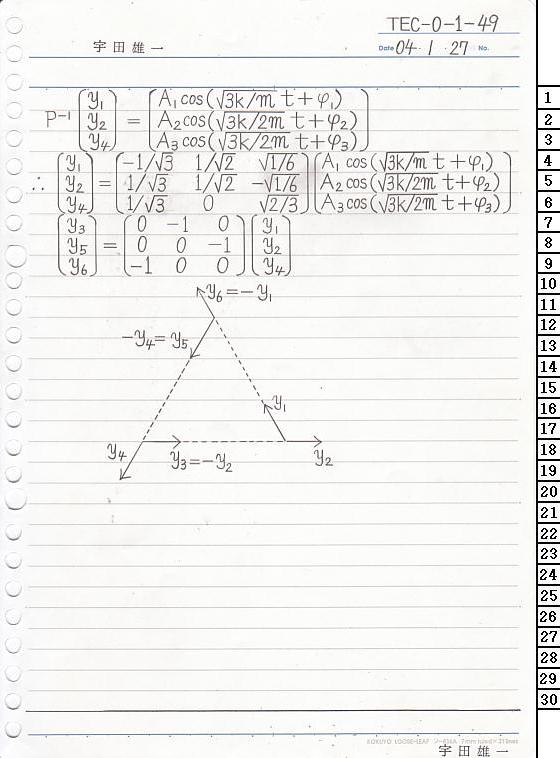 TEC-0-1-49
宇田雄一 Date 04・1・27 No.
P⁻¹ (y₁ y₂ y₄) = (A₁cos(√3k/m t+φ₁) A₂cos(√3k/2m t+φ₂) A₃cos(√3k/2m t+φ₃))
∴ (y₁ y₂ y₄) = (-1/√3 1/√2 √1/6 1/√3 1/√2 -√1/6 1/√3 0 √2/3) (A₁cos(√3k/m t+φ₁) A₂cos(√3k/2m t+φ₂) A₃cos(√3k/2m t+φ₃))
(y₃ y₅ y₆) = (0 -1 0 0 0 -1 -1 0 0) (y₁ y₂ y₄)
y₆=-y₁
-y₄=y₅
y₁
y₄
y₃=-y₂
y₂
1
2
3
4
5
6
7
8
9
10
11
12
13
14
15
16
17
18
19
20
21
22
23
24
25
26
27
28
29
30
KOKUYO LOOSE-LEAF ノ-836A 7mm ruled×31lines
宇田雄一